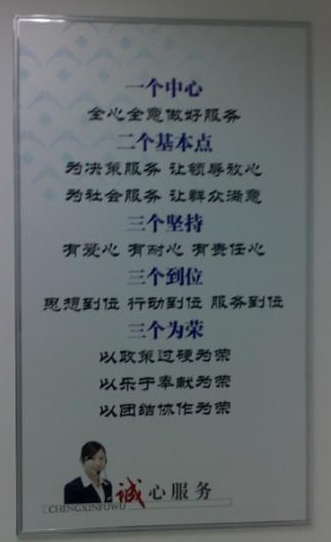 一个中心
全心全意做好服务
二个基本点
为决策服务 让领导放心
为社会服务 让群众满意
三个坚持
有爱心 有耐心 有责任心
三个到位
思想到位 行动到位 服务到位
三个为荣
以政策过硬为荣
以乐于奉献为荣
以团结协作为荣
诚心服务
CHENGXINFUWU